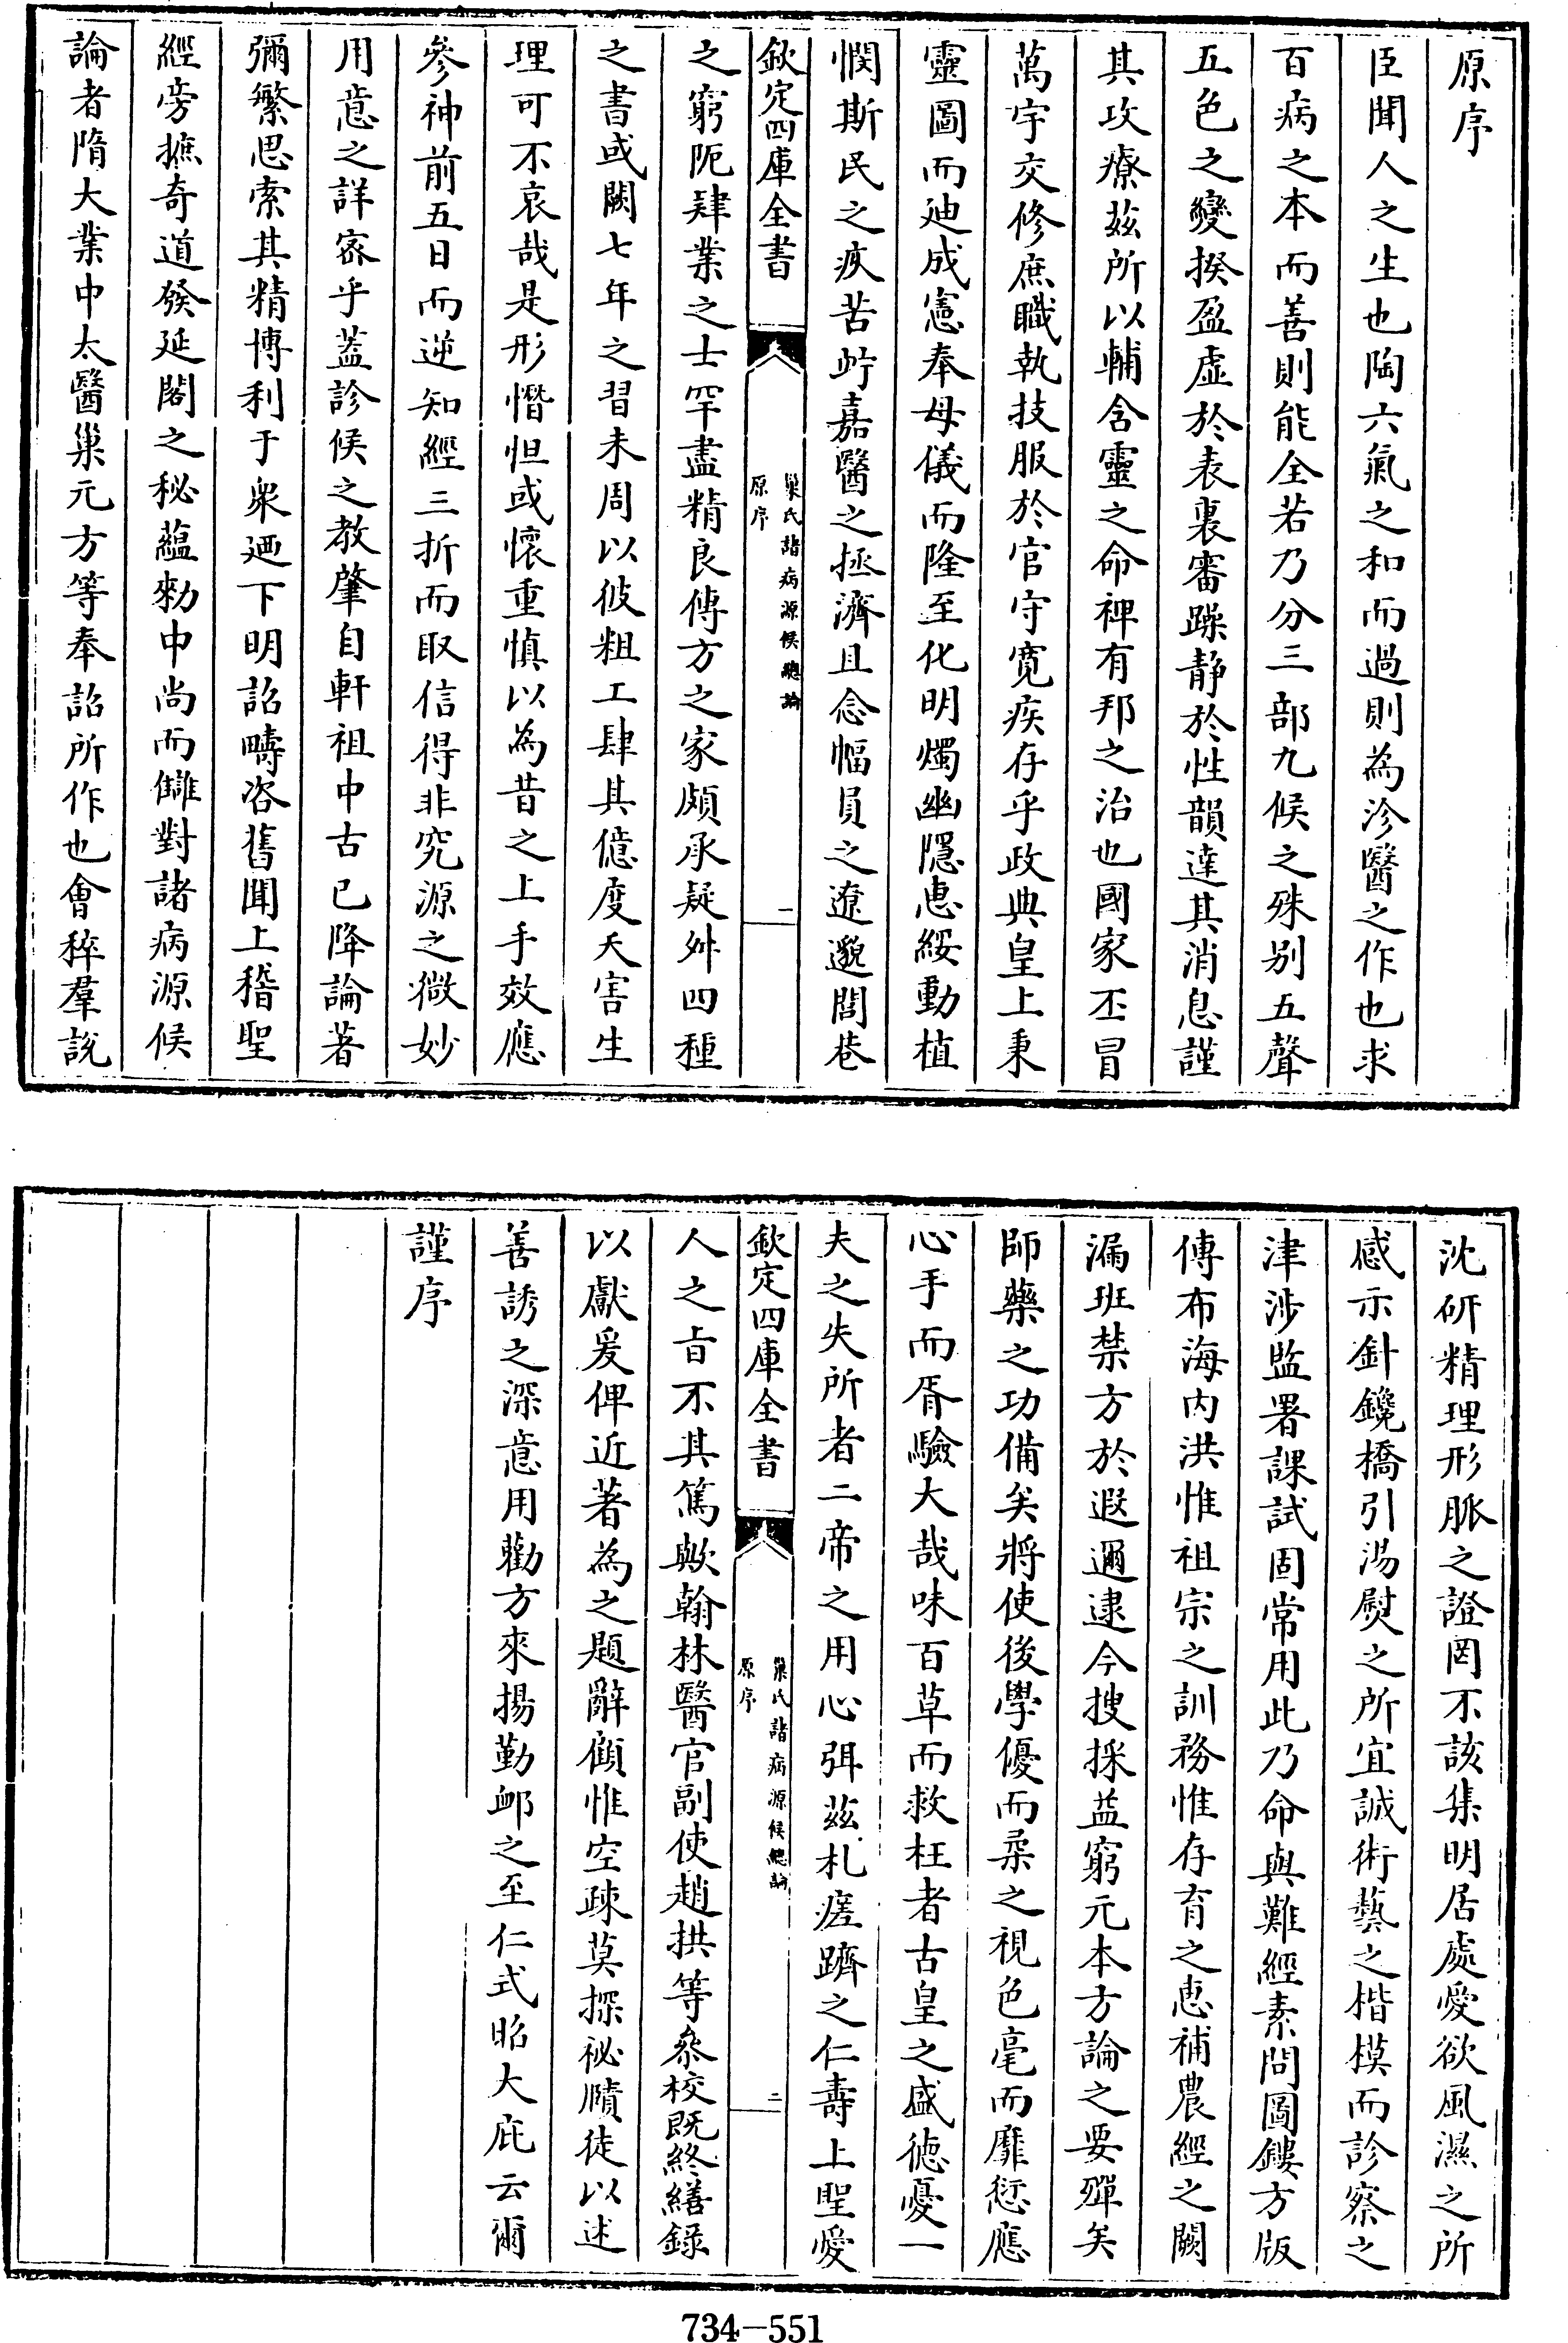 原序
臣聞人之生也陶六氣之和而過則為沴醫之作也求
百病之本而善則能全若乃分三部九候之殊别五聲
五色之變揆盈虛於表裏審躁静於性韻達其消息謹
其攻療茲所以輔含靈之命裨有邦之治也國家丕冒
萬宇交修庶職執技服於官守寛疾存乎政典皇上秉
靈圖而廸成憲奉母儀而隆至化明燭幽隱惠綏動植
憫斯民之疚苦竚嘉醫之拯濟且念幅員之遼邈閭巷
欽定四庫全書
巢氏諸病源候總論
原序
一
之窮阨肄業之士罕盡精良傳方之家頗承疑舛四種
之書或闕七年之習未周以彼粗工肆其億度夭害生
理可不哀哉是形憯怛或懷重慎以為昔之上手效應
參神前五日而逆知經三折而取信得非究源之微妙
用意之詳宻乎蓋診候之教肇自軒祖中古已降論著
彌繁思索其精博利于衆廼下明詔疇咨舊聞上稽聖
經旁摭奇道發延閣之秘蘊勑中尚而讎對諸病源候
論者隋大業中太醫巢元方等奉詔所作也會稡羣說
沈研精理形脈之證罔不該集明居處愛欲風濕之所
感示針鑱橋引湯熨之所宜誠術藝之楷模而診察之
津涉監署課試固常用此乃命與難經素問圖鏤方版
傳布海内洪惟祖宗之訓務惟存育之惠補農經之闕
漏班禁方於遐邇逮今搜採益窮元本方論之要殫矣
師藥之功備矣將使後學優而柔之視色毫而靡愆應
心手而胥驗大哉味百草而救枉者古皇之盛徳憂一
夫之失所者二帝之用心弭茲札瘥躋之仁壽上聖愛
欽定四庫全書
巢氏諸病源候總論
原序
二
人之㫖不其篤歟翰林醫官副使趙拱等叅校既終繕録
以獻爰俾近著為之題辭顧惟空疎莫探祕賾徒以述
善誘之深意用勸方來揚勤䘏之至仁式昭大庇云爾
謹序
734—551